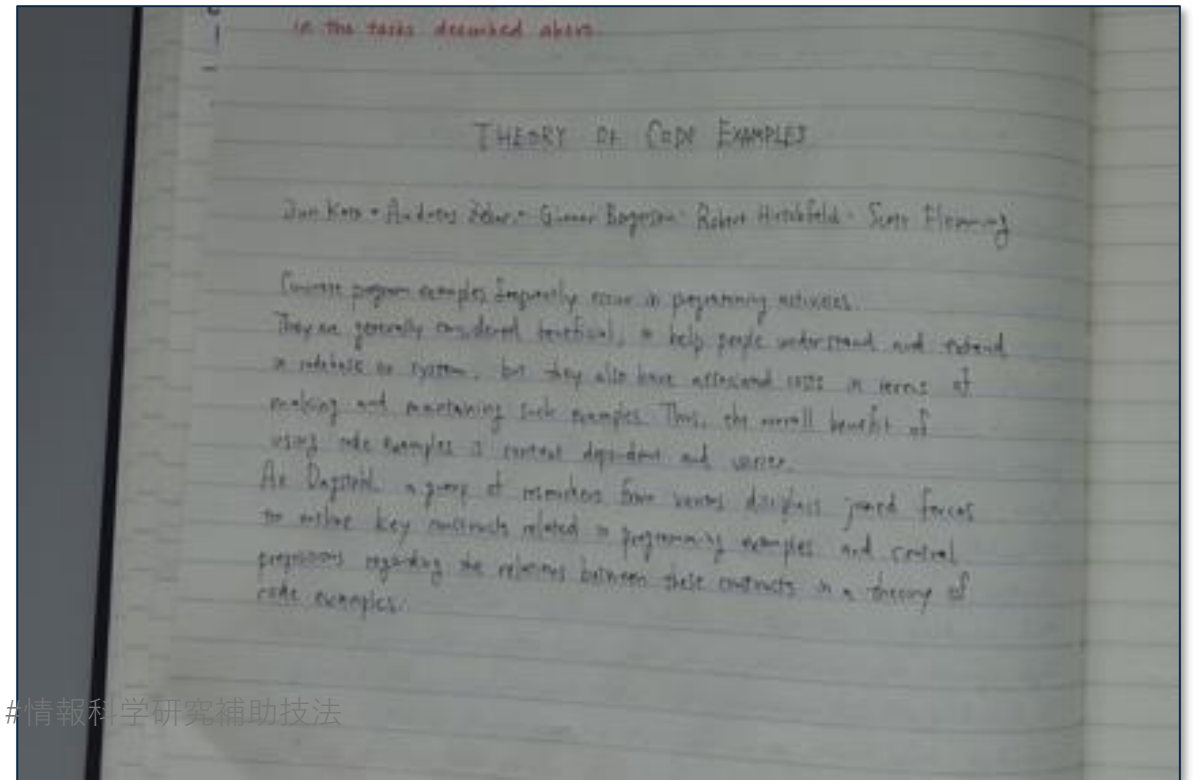 in the tasks described above
THEORY OF CODE EXAMPLES
Jun Kato - Andreas - Gunnar Bergersen - Robert Hirschfeld - Scott Fleming
Concrete program examples frequently occur in programming activities.
They are generally considered beneficial, to help people understand and extend
a codebase or system, but they also have associated costs in terms of
making and maintaining such examples. Thus, the overall benefit of
using code examples is context dependent and varies.
At Dagstuhl, a group of researchers from various disciplines joined forces
to outline key constructs related to programming examples and central
propositions regarding the relations between these constructs in a theory of
code examples.
#情報科学研究補助技法